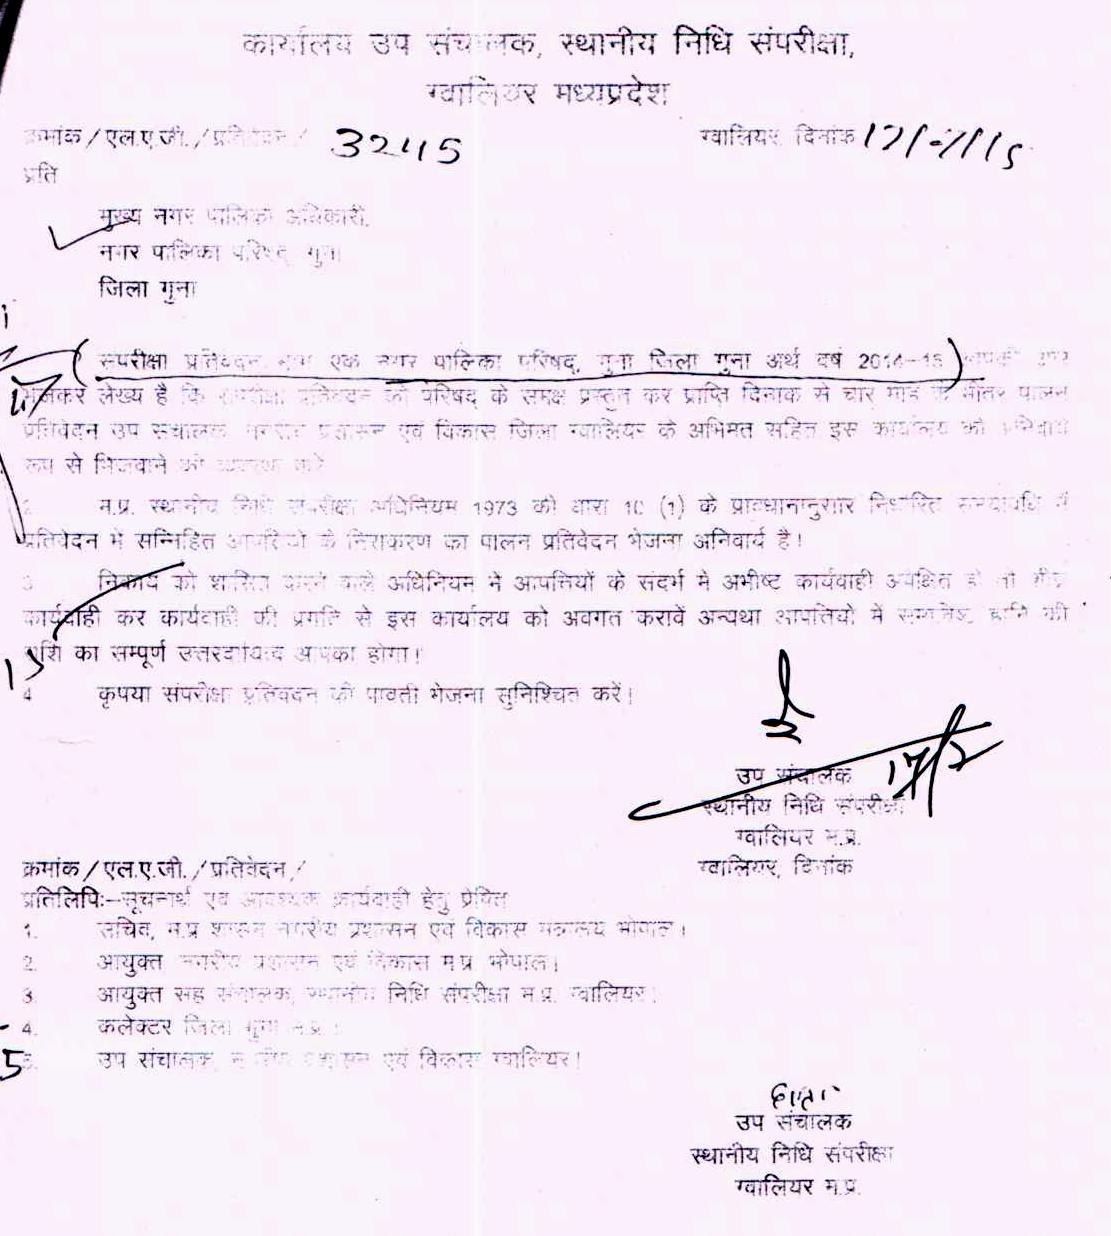 कार्यालय उप संचालक, स्थानीय निधि संपरीक्षा,
ग्वालियर मध्यप्रदेश
क्रमांक / एल.ए.जी. / प्रतिवेदन / 3245 ग्वालियर, दिनांक
प्रति
मुख्य नगर पालिका अधिकारी,
नगर पालिका परिषद् गुना
जिला गुना
संपरीक्षा प्रतिवेदन एक नगर पालिका परिषद, गुना जिला गुना अर्थ वर्ष 2014-15
भेजकर लेख्य है कि संपरीक्षा प्रतिवेदन को परिषद के समक्ष प्रस्तुत कर प्राप्ति दिनांक से चार माह के भीतर पालन
प्रतिवेदन उप संचालक, नगरीय प्रशासन एवं विकास जिला ग्वालियर के अभिमत सहित इस कार्यालय को अनिवार्य
रूप से भिजवाने की व्यवस्था करें
2. म.प्र. स्थानीय निधि संपरीक्षा अधिनियम 1973 की धारा 10 (1) के प्रावधानानुसार निर्धारित समयावधि में
प्रतिवेदन में सन्निहित आपत्तियों के निराकरण का पालन प्रतिवेदन भेजना अनिवार्य है।
3 निकाय को शासित करने वाले अधिनियम में आपत्तियों के संदर्भ में अभीष्ट कार्यवाही अपेक्षित हो तो शीघ्र
कार्यवाही कर कार्यवाही की प्रगति से इस कार्यालय को अवगत करावें अन्यथा आपत्तियों में हानि की
राशि का सम्पूर्ण उत्तरदायित्व आपका होगा।
4 कृपया संपरीक्षा प्रतिवेदन की पावती भेजना सुनिश्चित करें।
17/2
उप संचालक
स्थानीय निधि संपरीक्षा
ग्वालियर म.प्र.
क्रमांक / एल.ए.जी. / प्रतिवेदन / ग्वालियर, दिनांक
प्रतिलिपिः-सूचनार्थ एवं आवश्यक कार्यवाही हेतु प्रेषित
1. सचिव, म.प्र शासन नगरीय प्रशासन एवं विकास मंत्रालय भोपाल।
2. आयुक्त नगरीय प्रशासन एवं विकास म.प्र भोपाल।
3. आयुक्त सह संचालक, स्थानीय निधि संपरीक्षा म.प्र. ग्वालियर।
4. कलेक्टर जिला गुना म.प्र.।
5. उप संचालक, नगरीय प्रशासन एवं विकास ग्वालियर।
उप संचालक
स्थानीय निधि संपरीक्षा
ग्वालियर म.प्र.